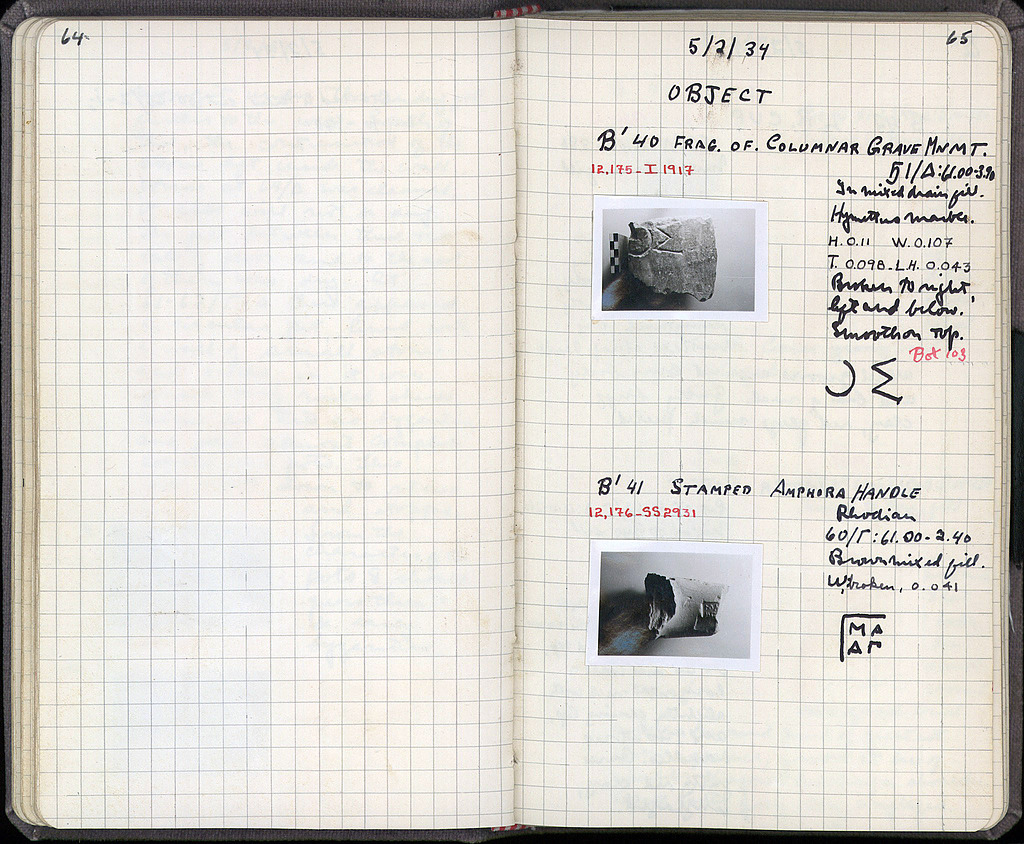 64
65
5/2/34
OBJECT
B' 40 FRAG. OF. COLUMNAR GRAVE MNMT.
12,175-I 1917
51/Δ:61.00-3.90
In mixed drain fill.
Hymettus marble.
H. 0.11 W. 0.107
T. 0.098-L.H. 0.043
Broken to right,
left and below.
Smooth on top.
Box 103
Ͻ Σ
B' 41 STAMPED AMPHORA HANDLE
12,176-SS2931
Rhodian
60/Γ:61.00-2.40
Brown mixed fill.
W, broken, 0.041
ΜΑ
ΑΓ